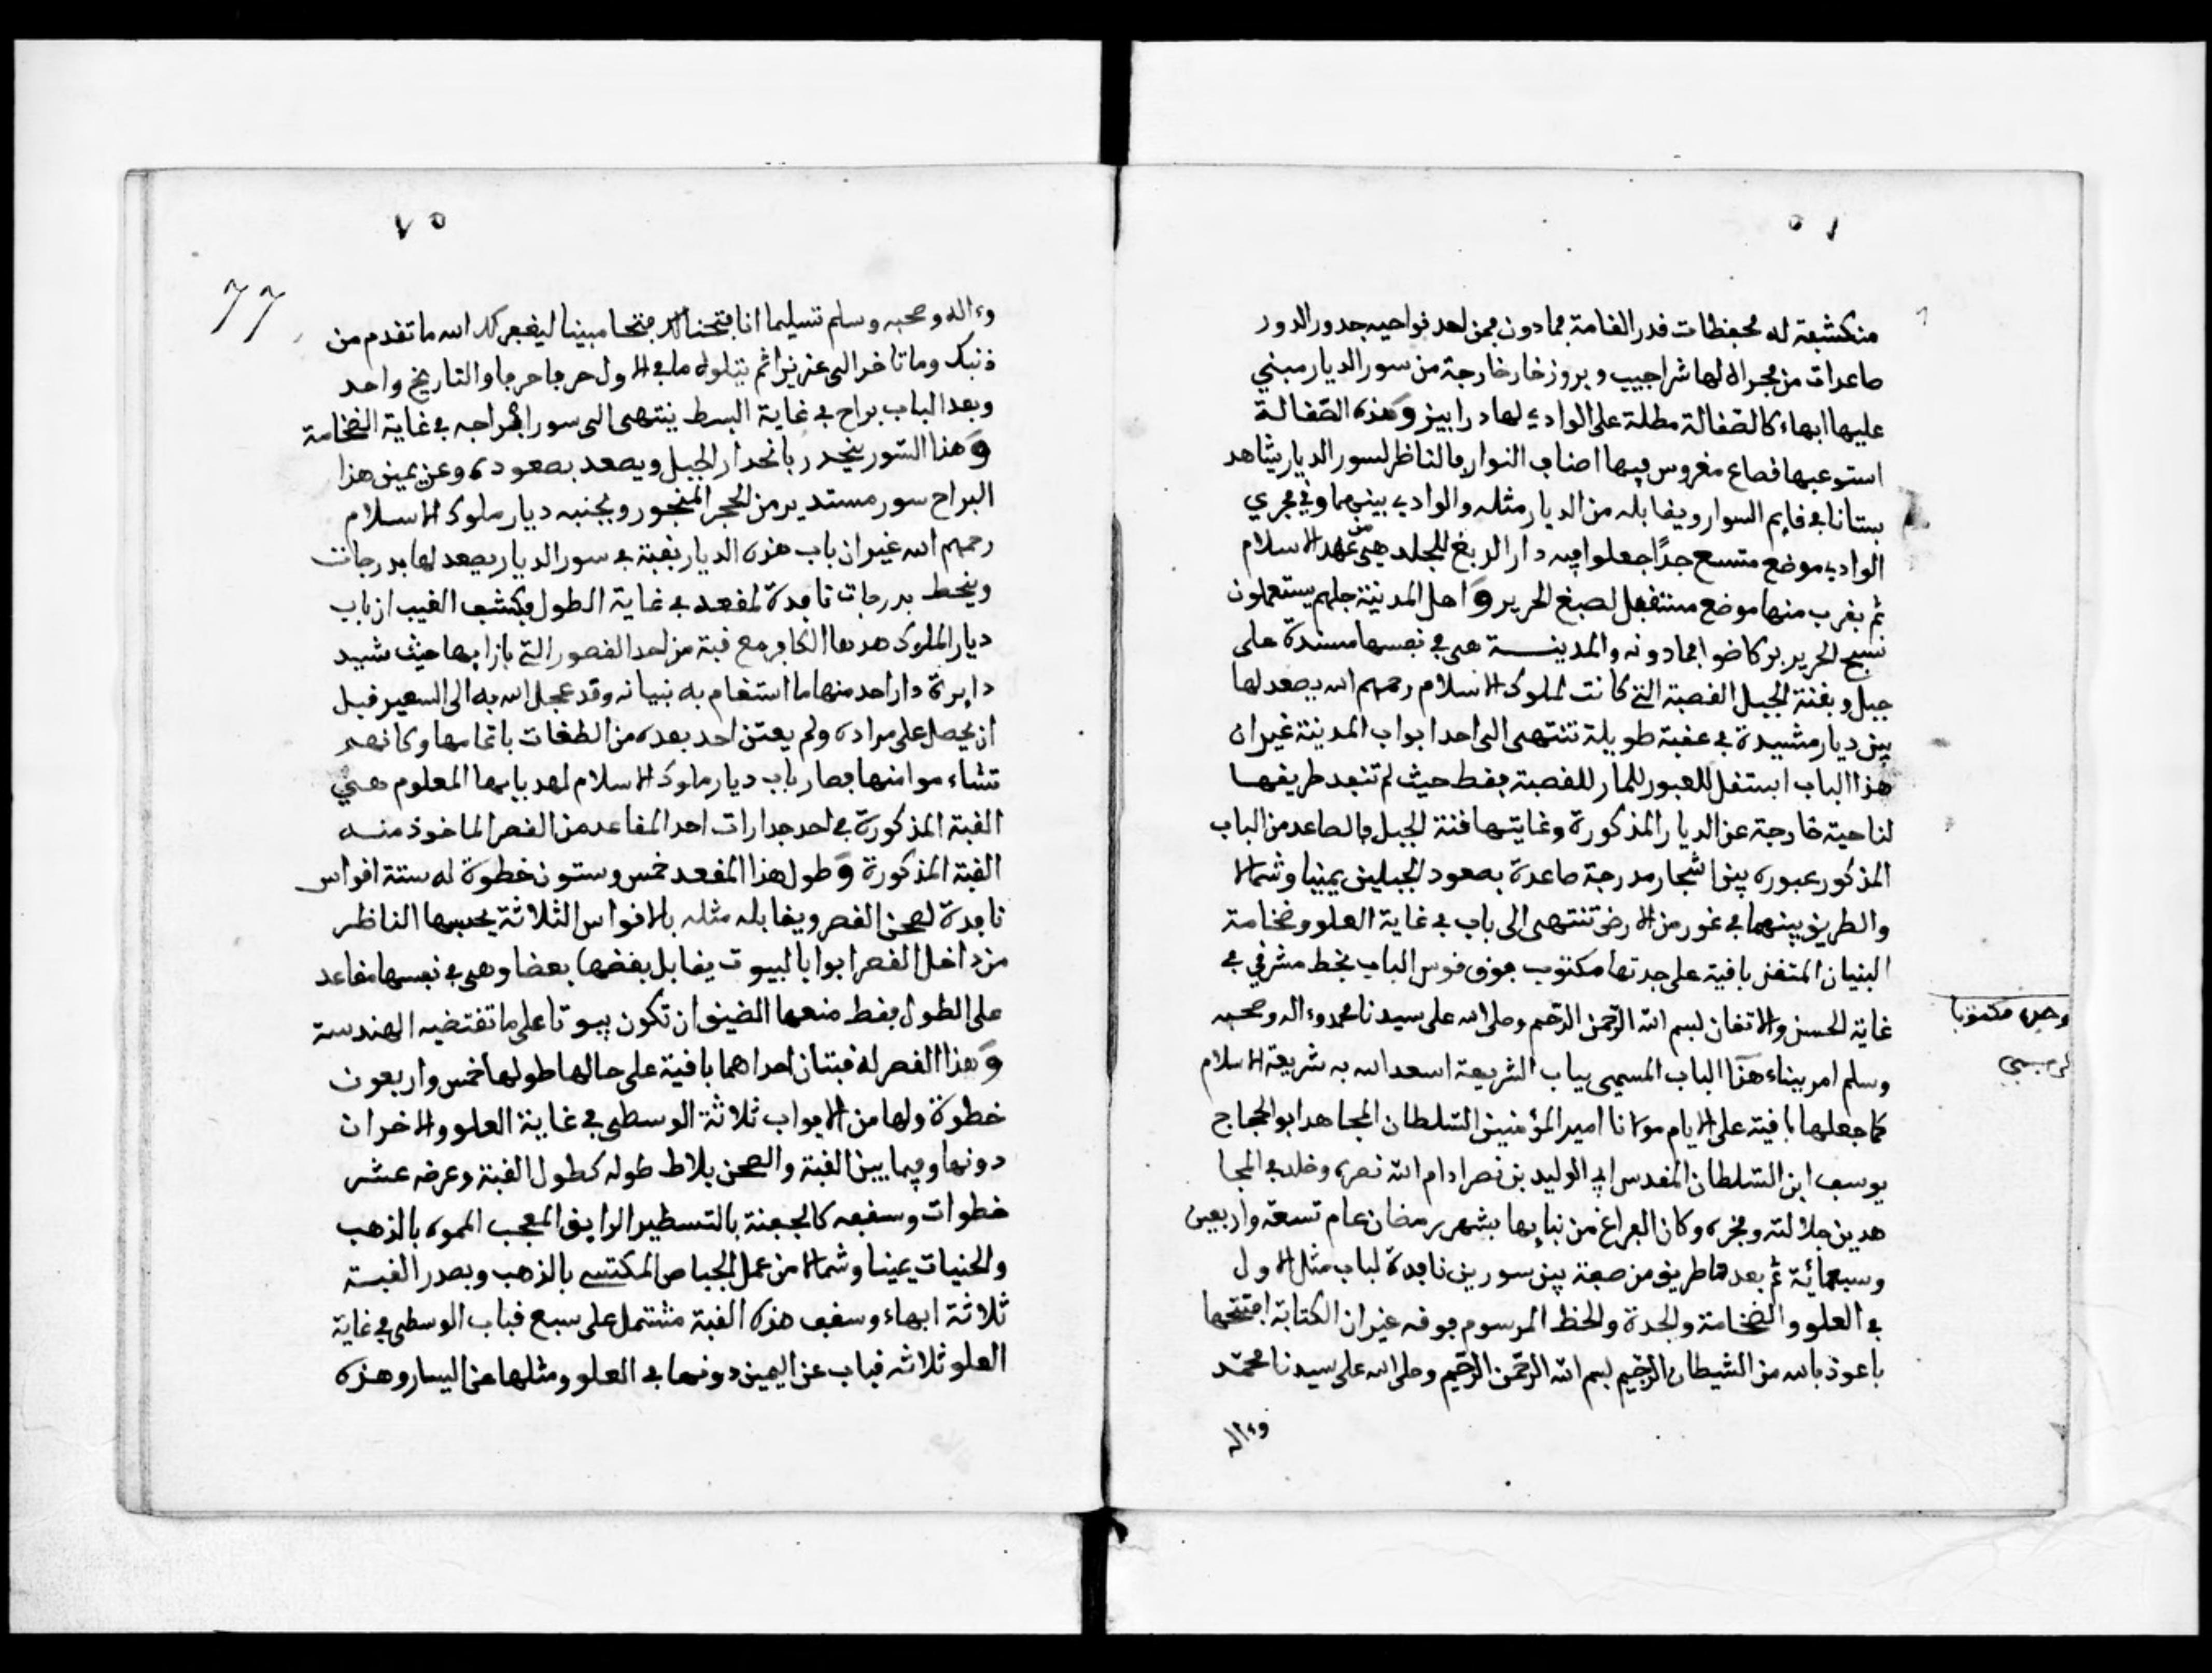 منكشفة له محفظات قدر القامة فما دون فمن احد نواحيه جدور الدور
صاعدات من مجراه لها شراجيب وبروز خارخارجة من سور الديار مبني
عليها ابهاء كالصقالة مطلة على الوادي لها درابيز وهذه الصقالة
استوعبها قصاع مغروس فيها اصناف النوار فالناظر لسور الديار يشاهد
بستانا في قايم السوار ويقابله من الديار مثله والوادي بينهما وفي مجرى
الوادي موضع متسع جدا جعلوا فيه دار الدبغ للجلد هي من عهد الاسلام
ثم بقرب منها موضع مستقبل لصبغ الحرير واهل المدينة جلهم يستعملون
نسج الحرير بركاضوا فما دونه والمدينة هي في نفسها مسندة على
جبل وبقنة الجبل القصبة التي كانت لملوك الاسلام رحمهم الله يصعد لها
بين ديار مشيدة في عقبة طويلة تنتهي الى احد ابواب المدينة غير ان
هذا الباب استقل للعبور للمار للقصبة فقط حيث لم تنفد طريقها
لناحية خارجة عن الديار المذكورة وغايتها قنة الجبل فالصاعد من الباب
المذكور عبوره بين اشجار مدرجة صاعدة بصعود الجبلين يمينا وشمالا
والطريق بينهما في غور من الارض تنتهي الى باب في غاية العلو وضخامة
البنيان المتقن باقية على جدتها مكتوب فوق قوس الباب بخط مشرقي في
غاية الحسن والاتقان بسم الله الرحمن الرحيم وصلى الله على سيدنا محمد وءاله وصحبه
وسلم امر ببناء هذا الباب المسمى بباب الشريعة اسعد الله به شريعة الاسلام
كما جعلها باقية على الايام مولانا امير المؤمنين السلطان المجاهد ابو الحجاج
يوسف ابن السلطان المقدس ابي الوليد بن نصر ادام الله نصره وخلد في المجا
هدين جلالته وفخره وكان الفراغ من بنايها بشهر رمضان عام تسعة واربعين
وسبعمائة ثم بعدها طريق من صعبة بين سورين نافدة لباب مثل الاول
في العلو والضخامة والجدة والخط المرسوم فوقه غير ان الكتابة افتتحها
باعوذ بالله من الشيطان الرجيم بسم الله الرحمن الرحيم وصلى الله على سيدنا محمد
وءاله
٧٥
77
وءاله وصحبه وسلم تسليما انا فتحنا لك فتحا مبينا ليغفر لك الله ما تقدم من
ذنبك وما تاخر الى عزيزا ثم يتلوه ما في الاول حرفا حرفا والتاريخ واحد
وبعد الباب براح في غاية البسط ينتهي الى سور ابراجه في غاية الضخامة
وهذا السور ينحدر بانحدار الجبل ويصعد بصعوده وعن يمين هذا
البراح سور مستدير من الحجر المنجور وبجنبه ديار ملوك الاسلام
رحمهم الله غير ان باب هذه الديار نقبة في سور الديار يصعد لها بدرجات
وينحط بدرجات نافدة لمقعد في غاية الطول ويكشف الغيب ان باب
ديار الملوك هدمها الكافر مع قبة من احد القصور التي بازايها حيث شيد
دايرة دار احد منها ما استقام به بنيانه وقد عجل الله به الى السعير قبل
ان يحصل على مراده ولم يعتن احد بعده من الطغات باتمامها وكانهم
تشاءموا منها فصار باب ديار ملوك الاسلام لهد بابها المعلوم هي
القبة المذكورة في احد جدارات احد المقاعد من القصر الماخوذ منه
القبة المذكورة وطول هذا المقعد خمس وستون خطوة له ستة اقواس
نافدة لصحن القصر ويقابله مثله بالاقواس الثلاثة يحسبها الناظر
من داخل القصر ابوابا لبيوت يقابل بعضها بعضا وهي في نفسها مقاعد
على الطول فقط منعها الضيق ان تكون بيوتا على ما تقتضيه الهندسة
وهذا القصر له قبتان احداهما باقية على حالها طولها خمس واربعون
خطوة ولها من الابواب ثلاثة الوسطى في غاية العلو والاخران
دونها وفيما بين القبة والصحن بلاط طوله كطول القبة وعرضه عشر
خطوات وسقفه كالجفنة بالتسطير الرايق المعجب المموه بالذهب
والحنيات يمينا وشمالا من عمل الجباص المكتسي بالذهب وبصدر القبة
ثلاثة ابهاء وسقف هذه القبة مشتمل على سبع قباب الوسطى في غاية
العلو ثلاثه قباب عن اليمين دونها في العلو ومثلها عن اليسار وهذه